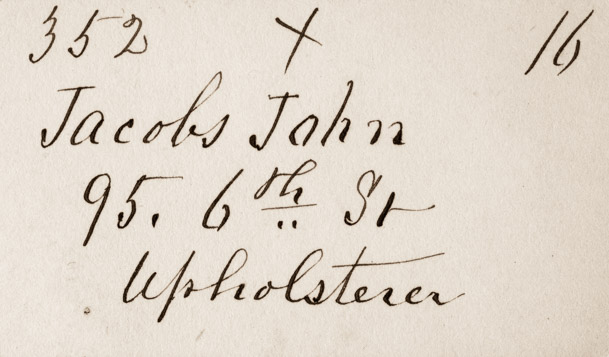 352 X 16
Jacobs John
95. 6th St
Upholsterer